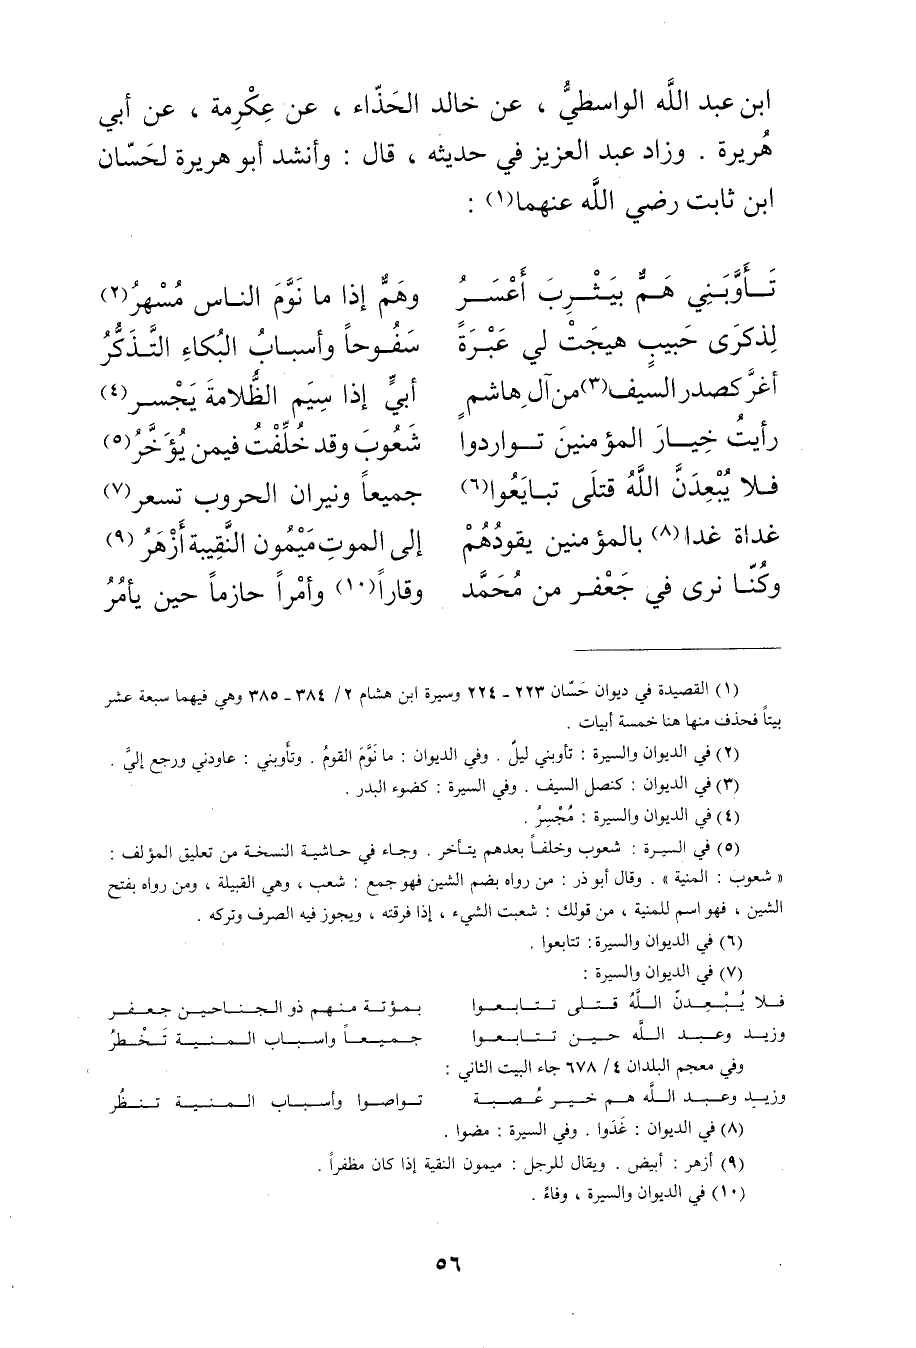 ابن عبد اللَّه الواسطيُّ ، عن خالد الحَذّاء ، عن عِكْرِمة ، عن أبي
هُريرة . وزاد عبد العزيز في حديثه ، قال : وأنشد أبو هريرة لحَسّان
ابن ثابت رضي اللَّه عنهما(١) :
تَـأوَّبَـنِي هَـمٌّ بيَـثْـرِبَ أَعْسَـرُ وهَمٌّ إذا ما نَوَّمَ الناس مُسْهِرُ(٢)
لِذكرَى حَبيبٍ هيجَتْ لي عَبْرَةً سَفُـوحاً وأسبـابُ البُكاءِ التَّـذكُّرُ
أغرَّ كصدر السيف(٣) من آل هاشمٍ أبيٍّ إذا سِيَم الظُّلامةَ يَجْسـر(٤)
رأيتُ خِيـارَ المؤمنينَ تـواردوا شَعُوبَ وقد خُلِّفْتُ فيمن يُؤَخَّرُ(٥)
فـلا يُبْعِدَنَّ اللَّهُ قتلَى تبـايَعُوا(٦) جميعاً ونيران الحروب تسعر(٧)
غداة غدا(٨) بالمؤمنين يقودُهُمْ إلى الموتِ مَيْمُون النَّقِيبة أَزْهَرُ(٩)
وكُنّـا نرى في جَعْفـر من مُحَمَّد وقاراً(١٠) وأمْراً حازماً حين يأمُرُ
(١) القصيدة في ديوان حَسّان ٢٢٣ - ٢٢٤ وسيرة ابن هشام ٢/ ٣٨٤ - ٣٨٥ وهي فيهما سبعة عشر
بيتاً فحذف منها هنا خمسة أبيات .
(٢) في الديوان والسيرة : تأوبني ليلٌ . وفي الديوان : ما نَوَّمَ القومُ . وتأوبني : عاودني ورجع إليَّ .
(٣) في الديوان : كنصل السيف . وفي السيرة : كضوء البدر .
(٤) في الديوان والسيرة : مُجْسِرُ .
(٥) في السيـرة : شعوب وخلفـاً بعدهم يتـأخر . وجـاء في حـاشية النسخـة من تعليق المؤلف :
« شعوب : المنية » . وقال أبو ذر : من رواه بضم الشين فهو جمع : شعب ، وهي القبيلة ، ومن رواه بفتح
الشين ، فهو اسم للمنية ، من قولك : شعبت الشيء ، إذا فرقته ، ويجوز فيه الصرف وتركه .
(٦) في الديوان والسيرة : تتابعوا .
(٧) في الديوان والسيرة :
فـلا يُـبْـعِـدنّ الـلَّهُ قـتـلى تـتـابـعـوا بـمؤتـة منـهـم ذو الـجنـاحـيـن جـعـفـر
وزيـد وعـبـد اللَّه حـيـن تـتـابـعـوا جـمـيـعـاً واسـبـاب الـمـنـيـة تَـخْـطرُ
وفي معجم البلدان ٤/ ٦٧٨ جاء البيت الثاني :
وزيـد وعـبـد اللَّه هـم خـيـر عُـصبـة تـواصـوا وأسـبـاب الـمـنـيـة تـنـظُر
(٨) في الديوان : غَدَوا . وفي السيرة : مضوا .
(٩) أزهر : أبيض . ويقال للرجل : ميمون النقية إذا كان مظفراً .
(١٠) في الديوان والسيرة ، وفاءً .
٥٦